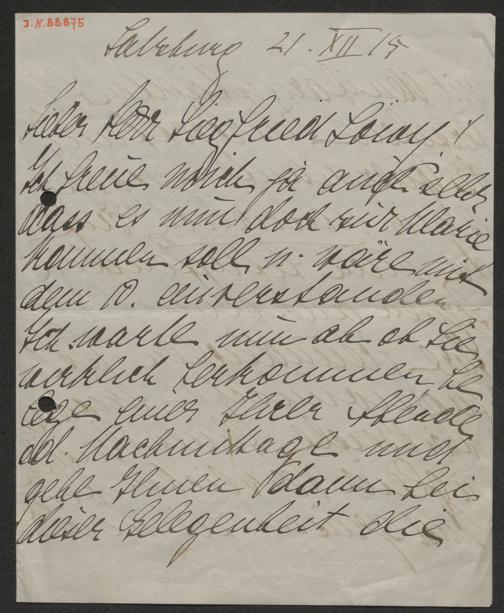 J.N. 88875
Salzburg 21. XII 15
Lieber Herr Siegfried Löwy!
Ich freue mich ja auch sehr
dass es nun doch zur Marie
kommen soll u. wäre mit
dem 10. einverstanden
Ich warte nun ab ob Sie
wirklich herkommen be
einer Ihrer Abende
Nachmittage und
gebe Ihnen dann bei
dieser Gelegenheit die